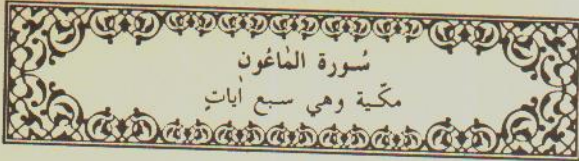 سُورة المٰاعُونِ
مكّية وهي سبع اٰياتٍ